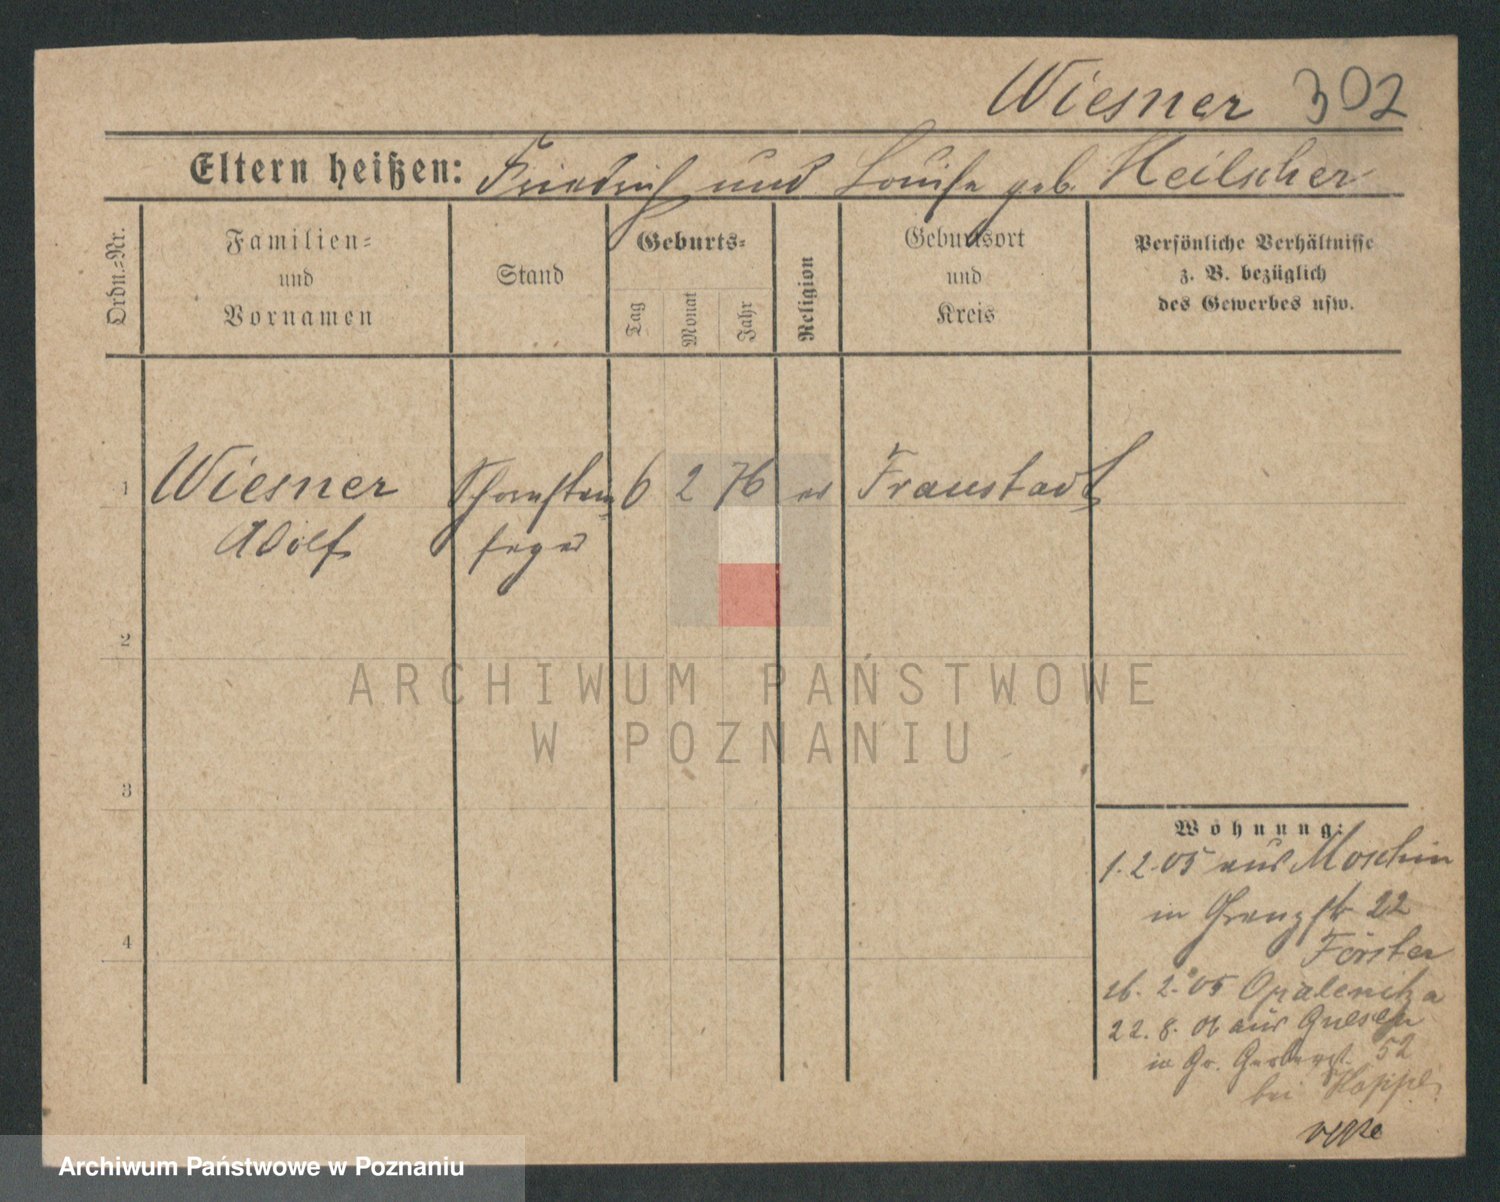 Wiesner 302
Eltern heißen: Friedrich und Louise geb. Heilscher
Ordn.-Nr.
Familien-
und
Vornamen
Stand
Geburts-
Tag
Monat
Jahr
Religion
Geburtsort
und
Kreis
Persönliche Verhältnisse
z. B. bezüglich
des Gewerbes usw.
1 Wiesner Schornstein 6 2 76 ev Fraustadt
Adolf feger
2
3
4
Wohnung:
1.2.05 aus Moschin
in Grenzstr 22
Förster
2. 05 Opalenitza
22.8.06 aus Gnesen
in Gr. Gerberst. 52
bei Hoppe
ARCHIWUM PAŃSTWOWE
W POZNANIU
Archiwum Państwowe w Poznaniu